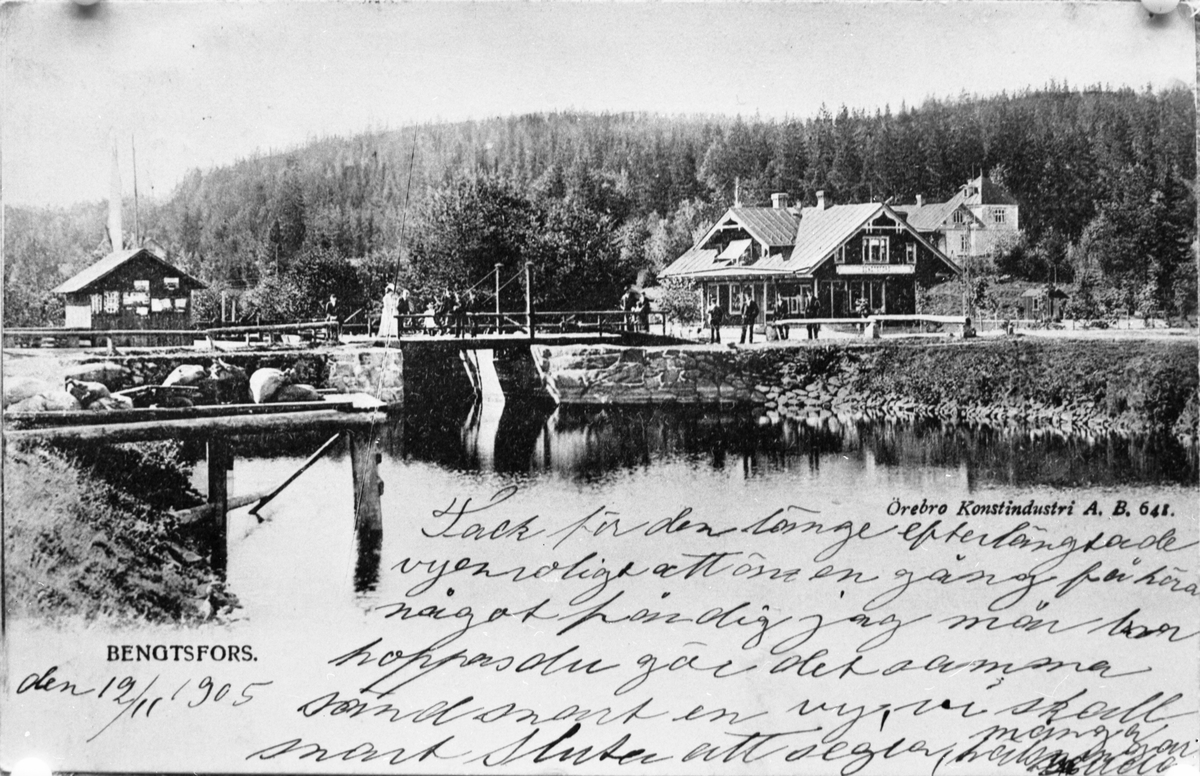 Örebro Konstindustri A. B. 641.
Tack för den länge efterlängtade
vyen roligt att än en gång få höra
något från dig jag mår bra
hoppas du gör det samma
sänd snart en vy, vi skall
snart sluta att segla
många
BENGTSFORS.
den 19/11 1905